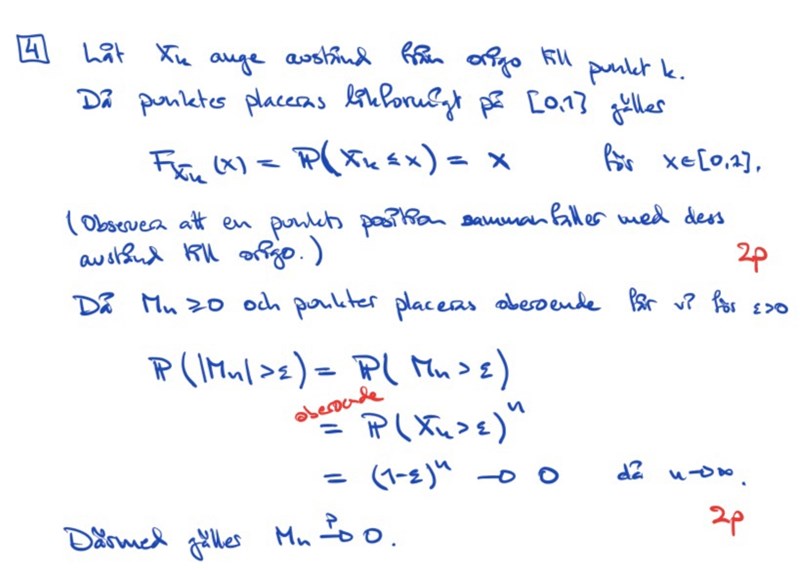 4 Låt X_k ange avstånd från origo till punkt k.
Då punkter placeras likformigt på [0,1] gäller
F_{X_k}(x) = ℙ(X_k ≤ x) = x för x∈[0,1].
(Observera att en punkts position sammanfaller med dess
avstånd till origo.)
2p
Då M_n ≥ 0 och punkter placeras oberoende får vi för ε>0
ℙ(|M_n| > ε) = ℙ(M_n > ε)
oberoende
= ℙ(X_k > ε)^n
= (1-ε)^n → 0 då n→∞.
2p
Därmed gäller M_n →^P 0.